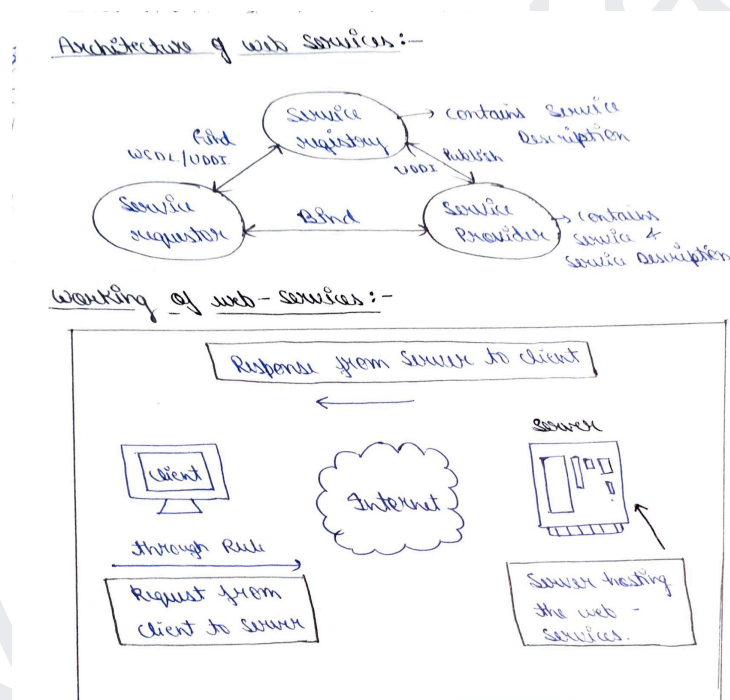 Architecture of web services:-
Service
registry
→ contains Service
Description
Find
WSDL/UDDI
Publish
UDDI
Service
requestor
Bind
Service
Provider
→ contains
service &
service Description
working of web-services:-
Response from Server to client
Server
client
Internet
through Rule
Request from
client to server
Server hosting
the web-
services.